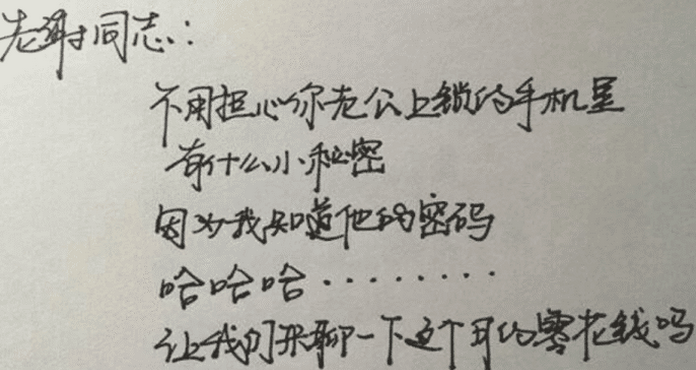 老谢同志:
不用担心你老公上锁的手机里
有什么小秘密
因为我知道他的密码
哈哈哈········
让我们来聊一下这个月的零花钱吗